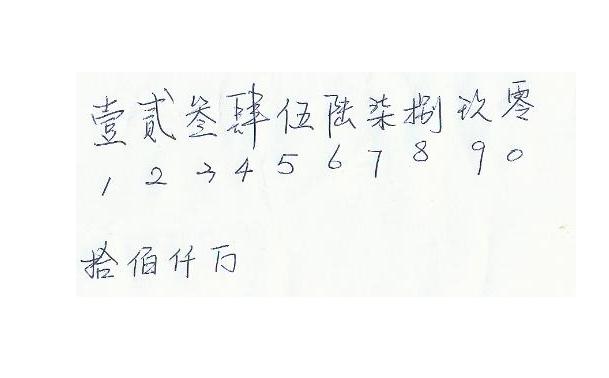 壹貳叁肆伍陆柒捌玖零
1 2 3 4 5 6 7 8 9 0
拾佰仟万